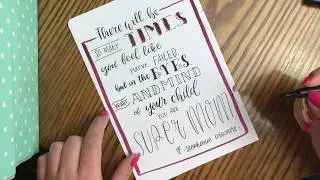 There will be
SO MANY TIMES
you feel like
YOU'VE FAILED
but in the EYES
HEART AND MIND
of your child
YOU ARE
SUPER MOM